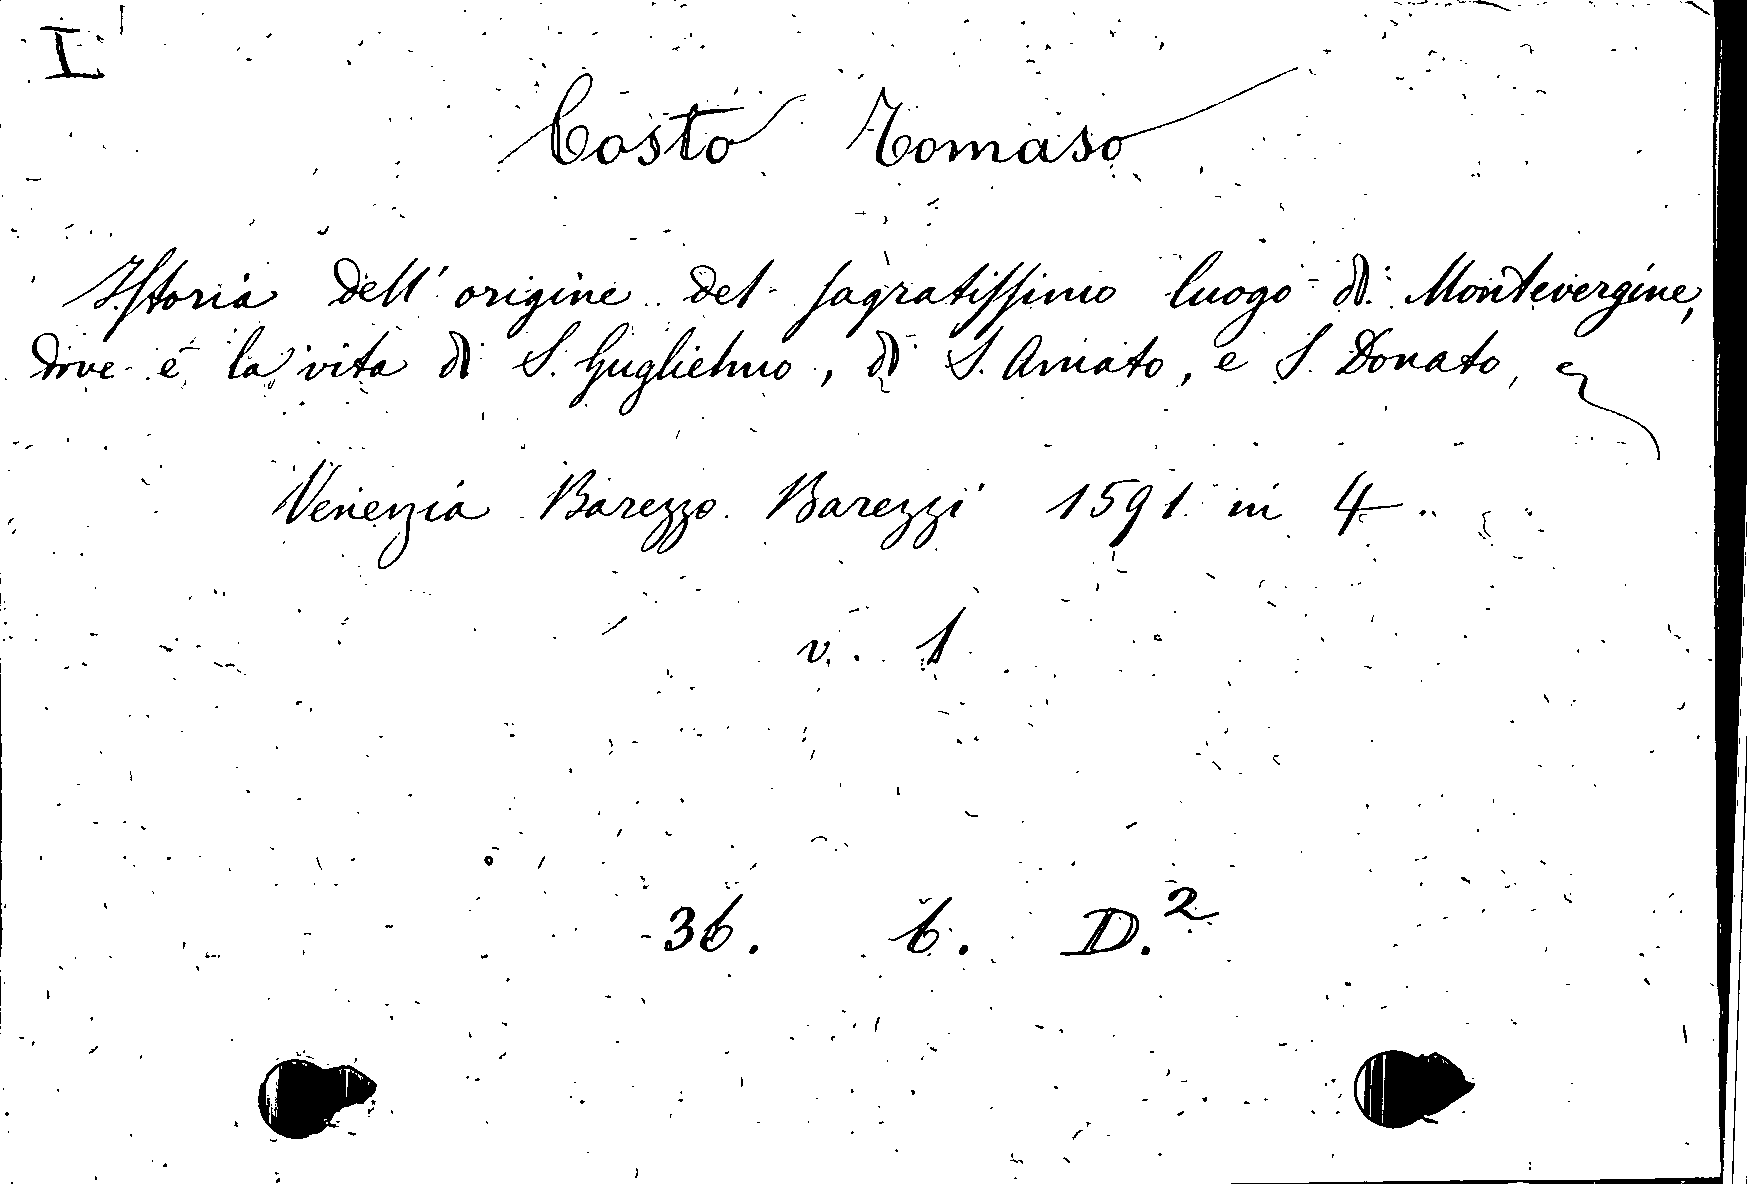 I
Costo Tomaso
Istoria dell' origine del sagratissimo luogo di Montevergine,
dove è la vita di S. Guglielmo, di S. Amato, e S. Donato,
Venezia Barezzo Barezzi 1591 in 4
v. 1
36. 6. D.2